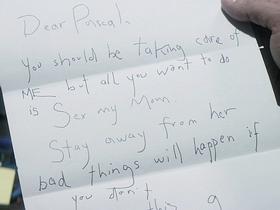 Dear Pascal,
you should be taking care of
ME but all you want to do
is Ser my Mom.
Stay away from her
bad things will happen if
you don't